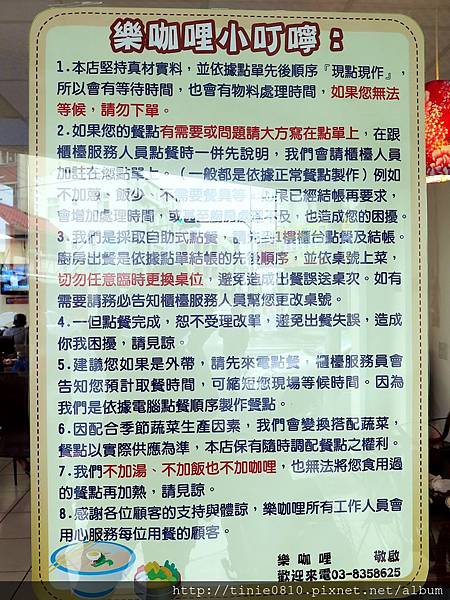 樂咖哩小叮嚀：
1.本店堅持真材實料，並依據點單先後順序『現點現作』，
所以會有等待時間，也會有物料處理時間，如果您無法
等候，請勿下單。
2.如果您的餐點有需要或問題請大方寫在點單上，在跟
櫃檯服務人員點餐時一併先說明，我們會請櫃檯人員
加註在您點單上。（一般都是依據正常餐點製作）例如
不加蔥、飯少、不需要餐具等，如果已經結帳再要求，
會增加處理時間，或甚至廚房處理不及，也造成您的困擾。
3.我們是採取自助式點餐，請先到1樓櫃台點餐及結帳。
廚房出餐是依據點單結帳的先後順序，並依桌號上菜，
切勿任意臨時更換桌位，避免造成出餐誤送桌次。如有
需要請務必告知櫃檯服務人員幫您更改桌號。
4.一但點餐完成，恕不受理改單，避免出餐失誤，造成
你我困擾，請見諒。
5.建議您如果是外帶，請先來電點餐，櫃檯服務員會
告知您預計取餐時間，可縮短您現場等候時間。因為
我們是依據電腦點餐順序製作餐點。
6.因配合季節蔬菜生產因素，我們會變換搭配蔬菜，
餐點以實際供應為準，本店保有隨時調配餐點之權利。
7.我們不加湯、不加飯也不加咖哩，也無法將您食用過
的餐點再加熱，請見諒。
8.感謝各位顧客的支持與體諒，樂咖哩所有工作人員會
用心服務每位用餐的顧客。
樂咖哩 敬啟
歡迎來電03-8358625
http://tinie0810.pixnet.net/album